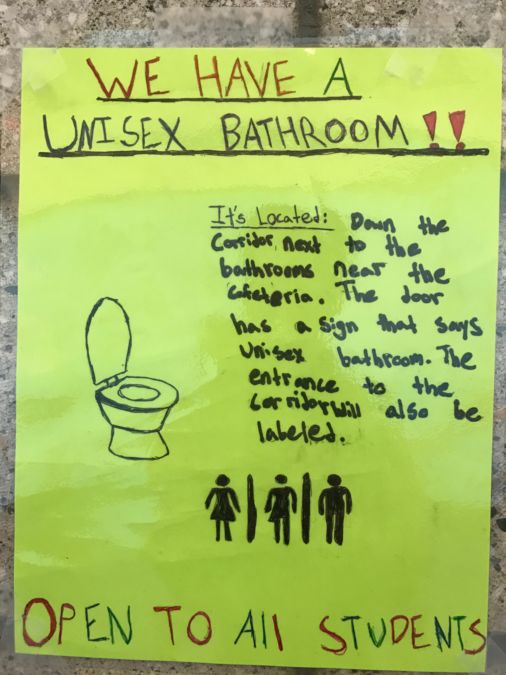 WE HAVE A
UNISEX BATHROOM!!
It's Located: Down the
Corridor, next to the
bathrooms near the
Cafeteria. The door
has a sign that says
Unisex bathroom. The
entrance to the
Corridor will also be
labeled.
OPEN TO All STUDENTS